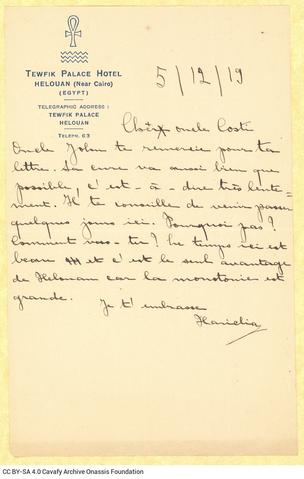 TEWFIK PALACE HOTEL
HELOUAN (Near Cairo)
(EGYPT)
TELEGRAPHIC ADDRESS:
TEWFIK PALACE
HELOUAN
TELEPH. 63
5/12/19
oncle Costi
Oncle John te remercie pour ta
lettre. Sa cure va aussi bien que
possible, c'est-à-dire très lente-
ment. Il te conseille de venir passer
quelques jours ici. Pourquoi pas?
Comment vas-tu? Le temps ici est
beau et c'est le seul avantage
de Helouan car la monotonie est
grande.
Je t'embrasse
CC BY-SA 4.0 Cavafy Archive Onassis Foundation